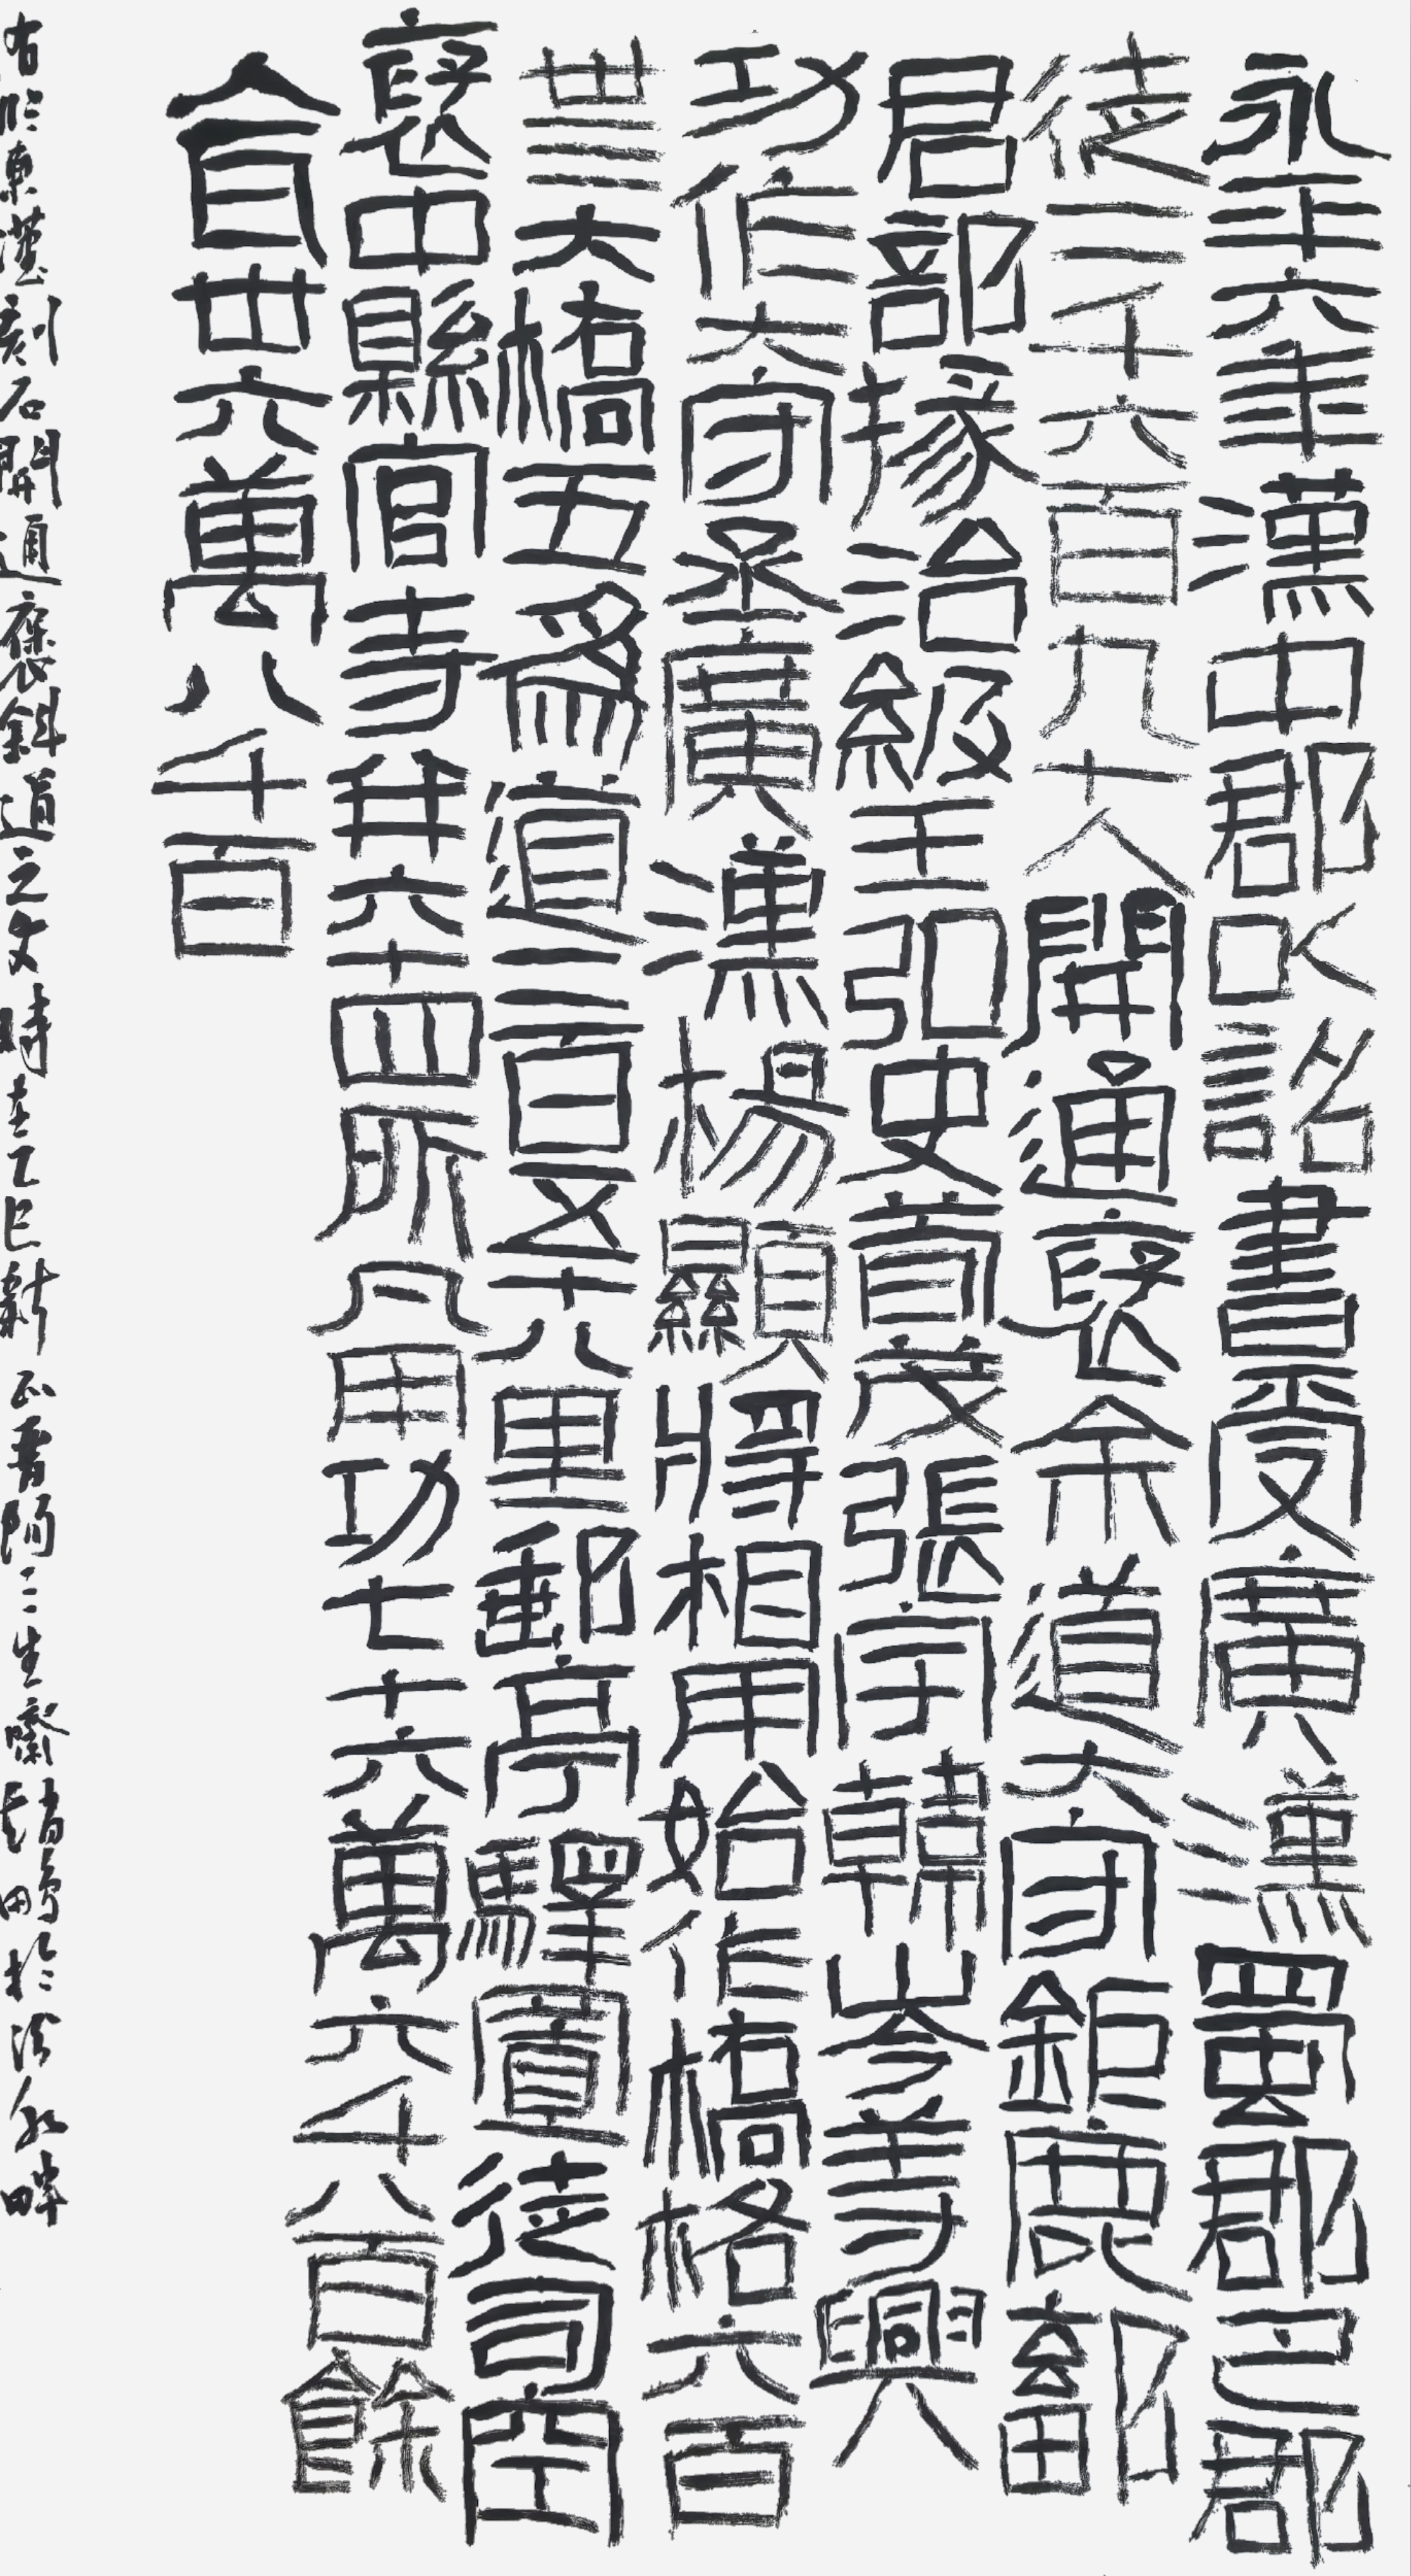 永平六年漢中郡以詔書受廣漢蜀郡巴郡
徒二千六百九十人開通褒余道大守鉅鹿鄐
君部掾治級王弘史荀茂張宇韓岑等興
功作大守丞廣漢楊顯將相用始作橋格六百
卅三大橋五為道二百五十八里郵亭驛置徒司空
褒中縣官寺并六十四所凡用功七十六萬六千八百餘
人瓦卅六萬八千百
右臨東漢刻石開通褒斜道之文時在乙巳新正晋陽三生齋趙於汾水畔